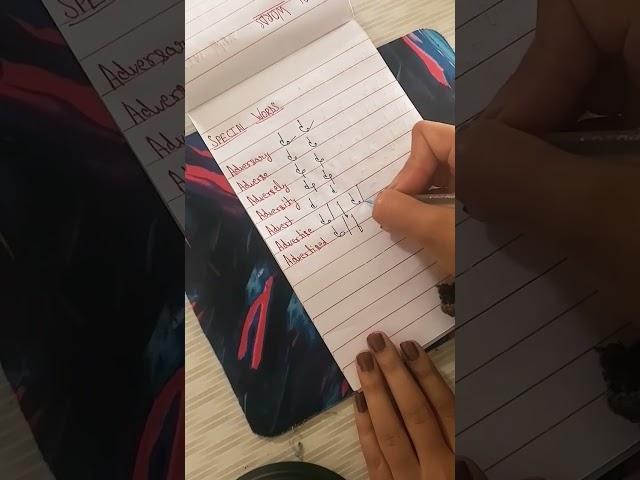 WORDS
SPECIAL WORDS
Adversary
Adverse
Adversely
Adversity
Advert
Advertise
Advertised